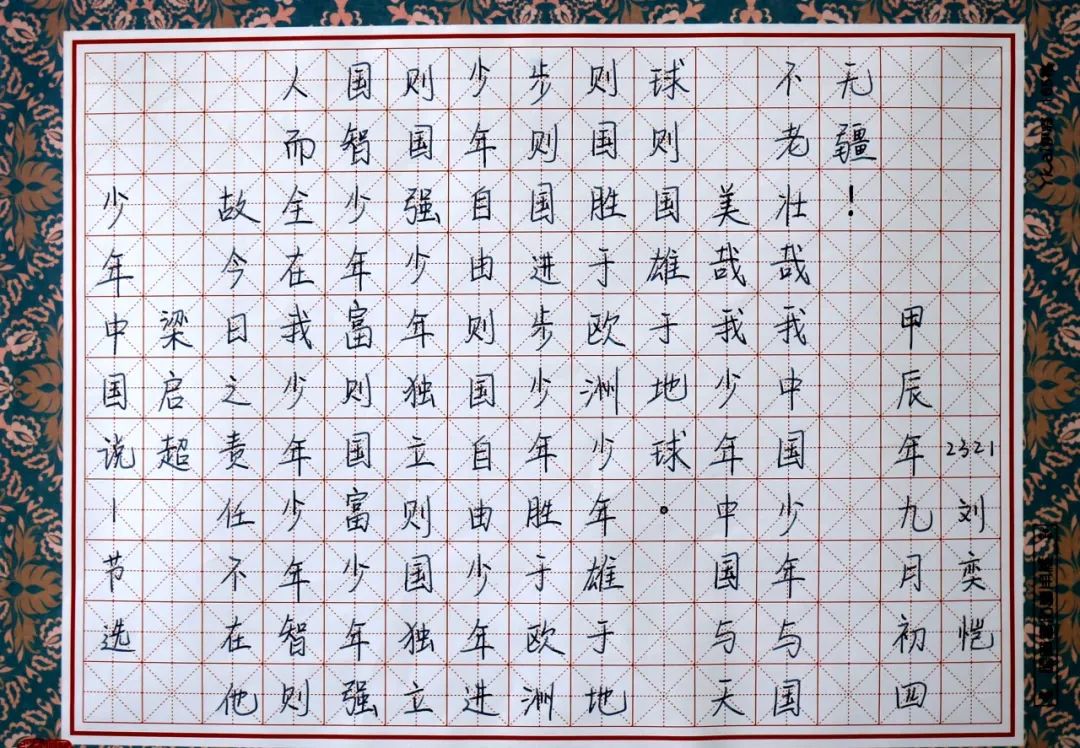 少年中国说—节选
梁启超
故今日之责任不在他
人而全在我少年少年智则
国智少年富则国富少年强
则国强少年独立则国独立
少年自由则国自由少年进
步则国进步少年胜于欧洲
则国胜于欧洲少年雄于地
球则国雄于地球。
美哉我少年中国与天
不老壮哉我中国少年与国
无疆！
甲辰年九月初四
2321刘奕恺